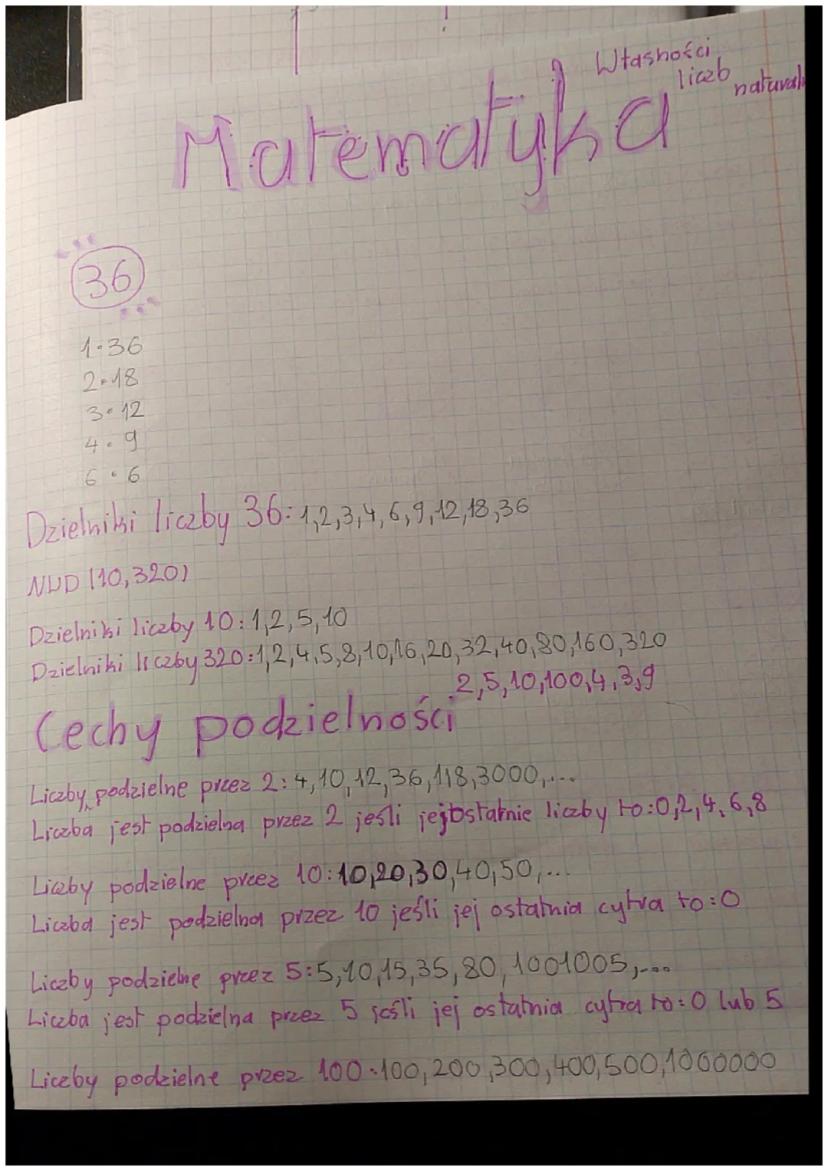 Własności
liczb
natural
Matematyka
36
1·36
2·18
3·12
4·9
6·6
Dzielniki liczby 36: 1,2,3,4,6,9,12,18,36
NWD (10,320)
Dzielniki liczby 10: 1,2,5,10
Dzielniki liczby 320: 1,2,4,5,8,10,16,20,32,40,80,160,320
2,5,10,100,4,3,9
Cechy podzielności
Liczby podzielne przez 2: 4,10,12,36,118,3000,...
Liczba jest podzielna przez 2 jeśli jej ostatnie liczby to: 0,2,4,6,8
Liczby podzielne przez 10: 10,20,30,40,50,...
Liczba jest podzielna przez 10 jeśli jej ostatnia cyfra to: 0
Liczby podzielne przez 5: 5,10,15,35,80,1001005,...
Liczba jest podzielna przez 5 jeśli jej ostatnia cyfra to: 0 lub 5
Liczby podzielne przez 100: 100,200,300,400,500,1000000